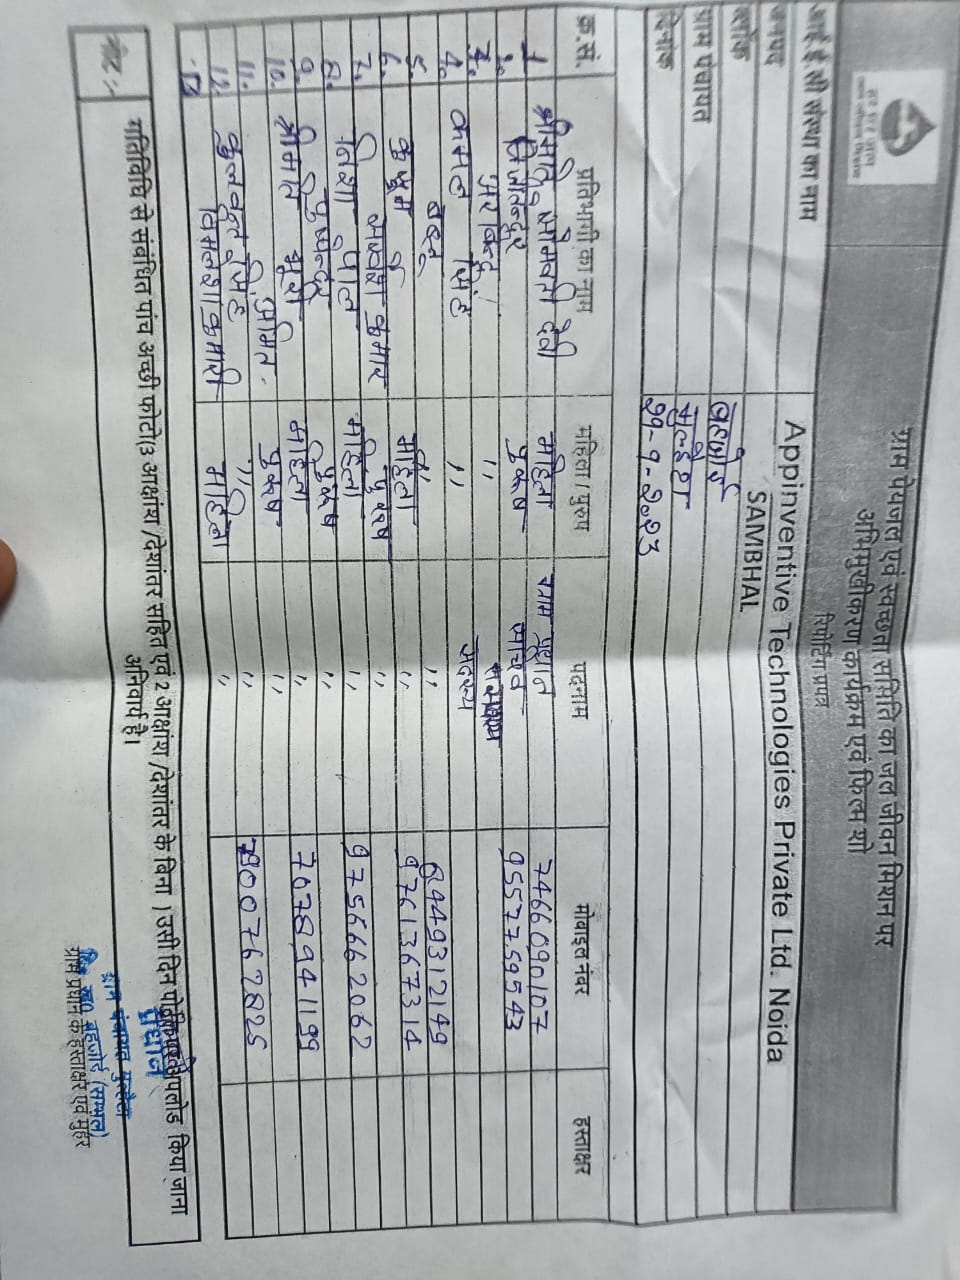 हर घर जल
जल जीवन मिशन
ग्राम पेयजल एवं स्वच्छता समिति का जल जीवन मिशन पर
अभिमुखीकरण कार्यकम एवं फिल्म शो
रिपोर्टिंग प्रपत्र
आई.ई.सी संस्था का नाम Appinventive Technologies Private Ltd. Noida
जनपद SAMBHAL
ब्लॉक बहजोई
ग्राम पंचायत
दिनांक 29-9-2023
क्र.सं. प्रतिभागी का नाम महिला / पुरुष पदनाम मोबाइल नंबर हस्ताक्षर
1 श्रीमति सोमवती देवी महिला ग्राम प्रधान 7466090107
2. पुरुष 9557759543
3. अरविन्द " सदस्य
4. कमल सिंह " "
5. 8449312149
6. महिला " 9761367314
7. कुमार पुरुष "
8. निशा पाल महिला " 9756662062
9. पुष्पेन्द्र पुरुष "
10. श्रीमति भूरी महिला " 7678941199
11. पुरुष "
12. कुलवन्त सिंह " " 7900762825
विमलेश कुमारी महिला "
नोट :- गतिविधि से संबंधित पांच अच्छी फोटो(3 आक्षांश /देशांतर सहित एवं 2 आक्षांश /देशांतर के बिना ) उसी दिन पोर्टल पर अपलोड किया जाना
अनिवार्य है।
प्रधान
ग्राम पंचायत
वि० ख० बहजोई (सम्भल)
ग्राम प्रधान के हस्ताक्षर एवं मुहर